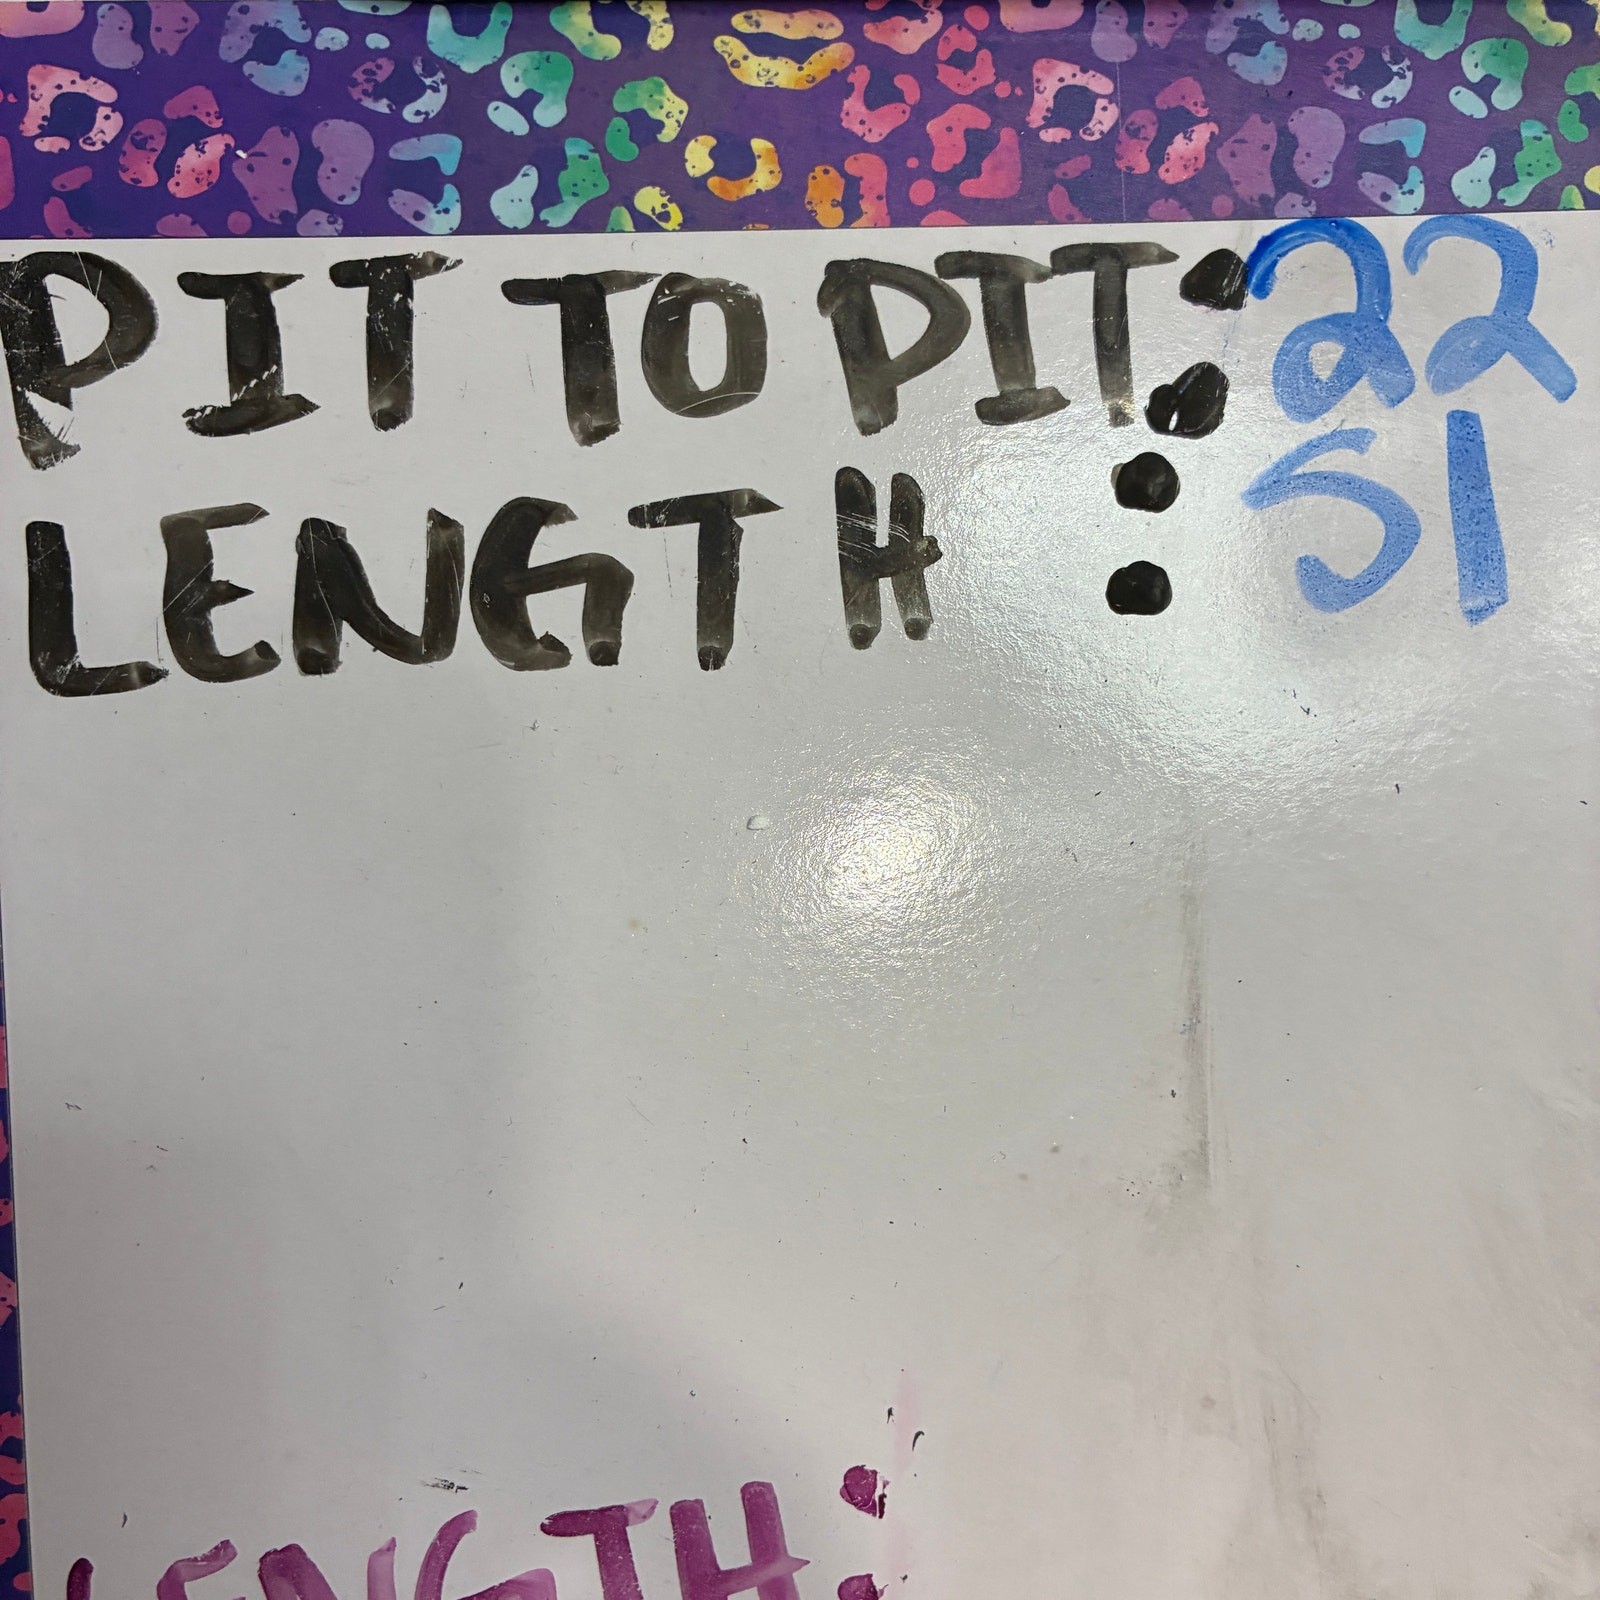 PIT TO PIT: 22
LENGTH : 51
LENGTH: